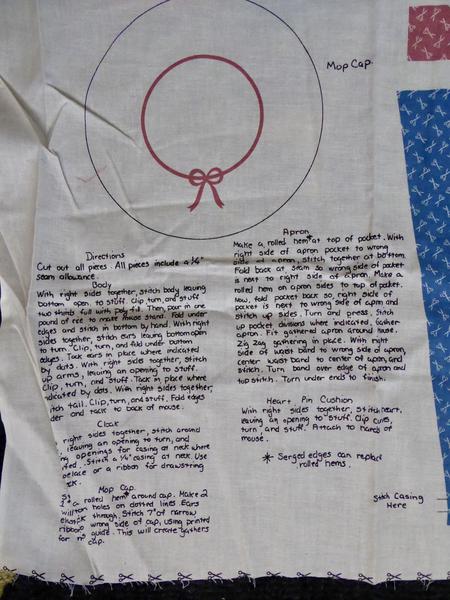 Mop Cap
Directions
Cut out all pieces. All pieces include a 1/4"
seam allowance.
Body
With right sides together, stitch body leaving
bottom open to stuff. Clip, turn and stuff
two thirds full with poly fil. Then, pour in one
pound of rice to make mouse stand. Fold under
edges and stitch in bottom by hand. With right
sides together, stitch ears leaving bottom open
to turn. Clip, turn, and fold under bottom
edges. Tack ears in place where indicated
by dots. With right sides together, stitch
up arms, leaving an opening to stuff.
Clip, turn, and stuff. Tack in place where
indicated by dots. With right sides together,
stitch tail. Clip, turn, and stuff. Fold edges
der and tack to back of mouse.
Cloak
right sides together, stitch around
leaving an opening to turn, and
openings for casing at neck where
Stitch a 1/4" casing at neck. Use
lace or a ribbon for drawstring
ck.
Mop Cap
a rolled hem* around cap. Make 2
holes on dotted lines. Ears
will through. Stitch 7" of narrow
elastic wrong side of cap, using printed
ribbon guide. This will create gathers
for cap.
Apron
Make a rolled hem* at top of pocket. With
right side of apron pocket to wrong
side of apron, stitch together at bottom.
Fold back at seam so wrong side of pocket
is next to right side of apron. Make a
rolled hem on apron sides to top of pocket.
Now, fold pocket back so right side of
pocket is next to wrong side of apron and
stitch up sides. Turn and press. Stitch
up pocket divisions where indicated. Gather
apron. Fit gathered apron around mouse.
Zig zag gathering in place. With right
side of waist band to wrong side of apron,
center waist band to center of apron, and
stitch. Turn band over edge of apron and
top stitch. Turn under ends to finish.
Heart Pin Cushion
With right sides together, stitch heart,
leaving an opening to stuff. Clip curves,
turn and stuff. Attach to hands of
mouse.
* Serged edges can replace
rolled hems.
Stitch Casing
Here